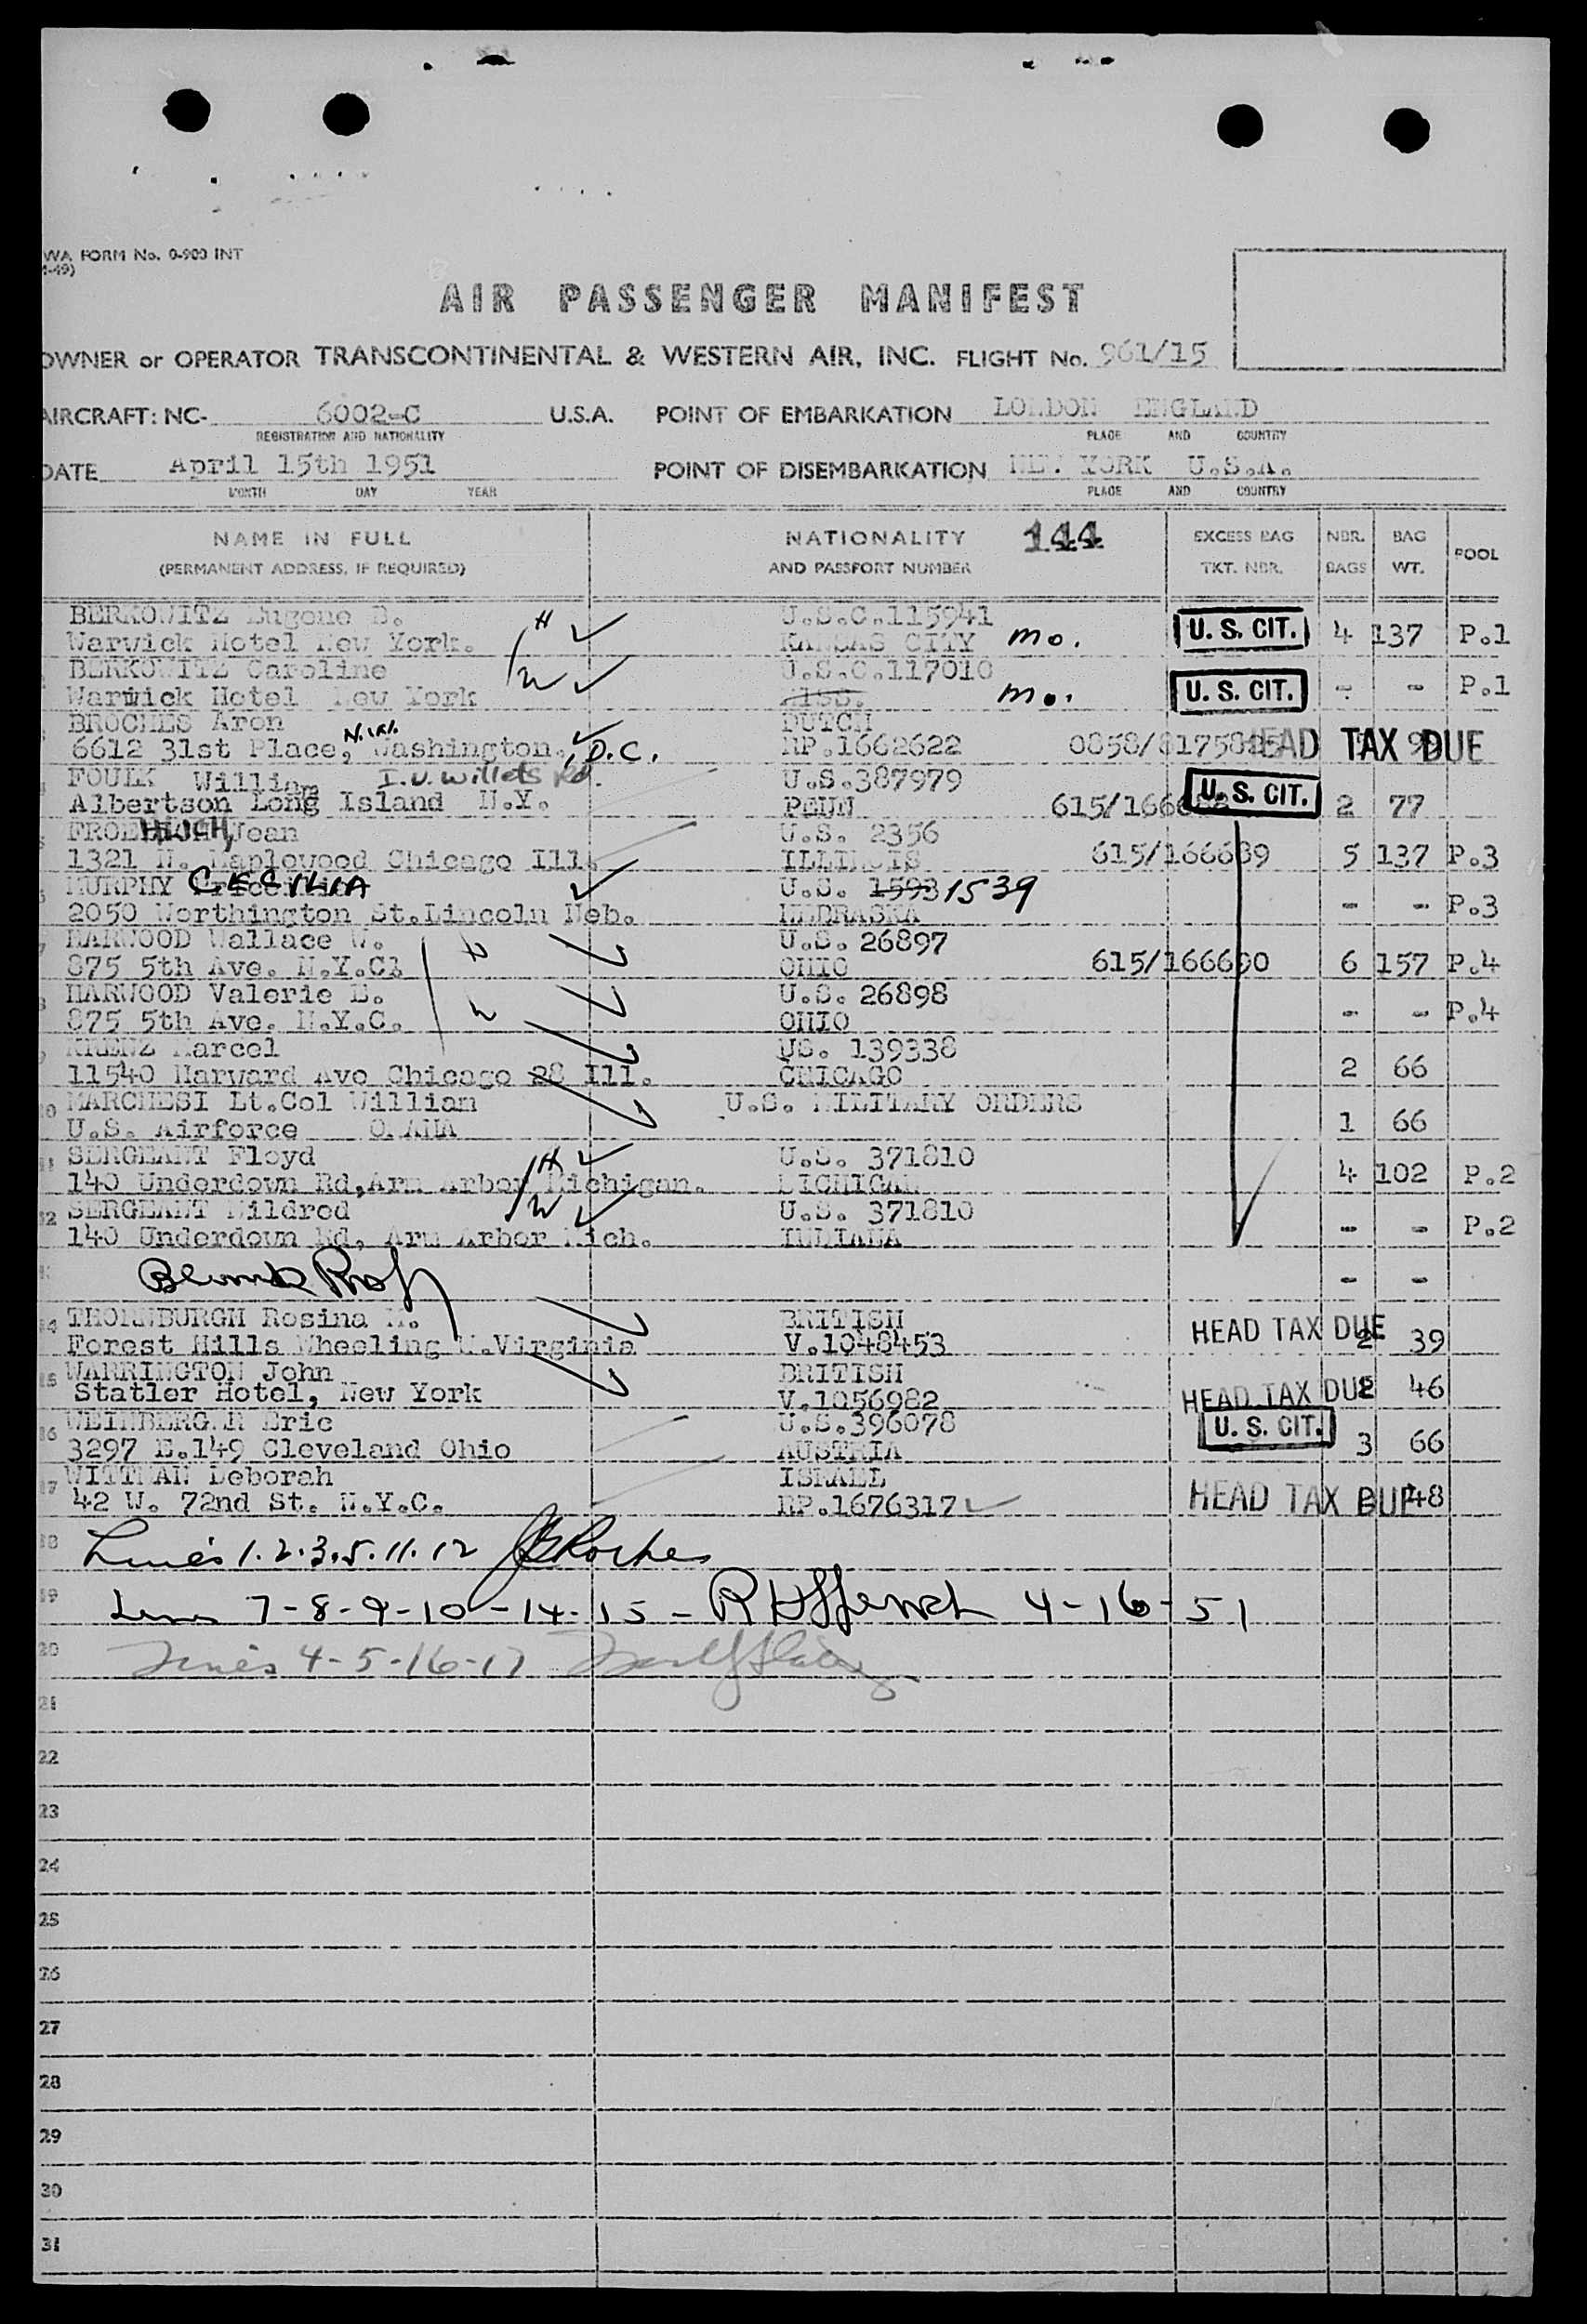 WA FORM No. 0-900 INT
AIR PASSENGER MANIFEST
OWNER or OPERATOR TRANSCONTINENTAL & WESTERN AIR, INC. FLIGHT No. 961/15
AIRCRAFT: NC- 6002-C U.S.A. POINT OF EMBARKATION LONDON ENGLAND
REGISTRATION AND NATIONALITY PLACE AND COUNTRY
DATE April 15th 1951 POINT OF DISEMBARKATION NEW YORK U.S.A.
MONTH DAY YEAR PLACE AND COUNTRY
NAME IN FULL NATIONALITY 144 EXCESS BAG NBR. BAG POOL
(PERMANENT ADDRESS, IF REQUIRED) AND PASSPORT NUMBER TKT. NBR. BAGS WT.
BERKOWITZ Eugene B. H U.S.C.115941
Warwick Hotel New York. KANSAS CITY mo. U. S. CIT. 4 137 P.1
BERKOWITZ Caroline W U.S.C.117010
Warwick Hotel New York MISS. mo. U. S. CIT. - - P.1
BROCHES Aron N.W. DUTCH
6612 31st Place, Washington, D.C. RP.1662622 HEAD TAX DUE
FOULK William I.U. Willets Rd. U.S.387979
Albertson Long Island N.Y. PENN U. S. CIT. 2 77
Jean U.S. 2356
1321 N. Maplewood Chicago Ill. ILLINOIS 615/166689 5 137 P.3
MURPHY CECILIA U.S. 1593 1539
2050 Worthington St.Lincoln Neb. NEBRASKA - - P.3
7 HARWOOD Wallace W. H U.S. 26897
875 5th Ave. N.Y.C1 OHIO 615/166690 6 157 P.4
HARWOOD Valerie E. W U.S. 26898
875 5th Ave. N.Y.C. OHIO - - P.4
KRENZ Marcel US. 139338
11540 Harvard Ave Chicago 28 Ill. CHICAGO 2 66
10 MARCHESI Lt.Col William U.S. MILITARY ORDERS
U.S. Airforce OMAHA 1 66
11 SERGEANT Floyd H U.S. 371810
140 Underdown Rd,Arm Arbor Michigan. MICHIGAN 4 102 P.2
12 SERGEANT Mildred W U.S. 371810
140 Underdown Rd, Arm Arbor Mich. INDIANA - - P.2
- -
14 THORNBURGH Rosina M. BRITISH
Forest Hills Wheeling W.Virginia V.1048453 HEAD TAX DUE 2 39
15 WARRINGTON John BRITISH
Statler Hotel, New York V.1056982 HEAD TAX DUE 2 46
16 WEINBERGER Eric U.S.396078
3297 E.149 Cleveland Ohio AUSTRIA U. S. CIT. 3 66
17 WITTMAN Deborah ISRAEL
42 W. 72nd St. N.Y.C. RP.1676317 HEAD TAX DUE 48
18 Lines 1.2.3.5.11.12
19 Lines 7-8-9-10-14-15- 4-16-51
20 Lines 4-5-16-17
21
22
23
24
25
26
27
28
29
30
31